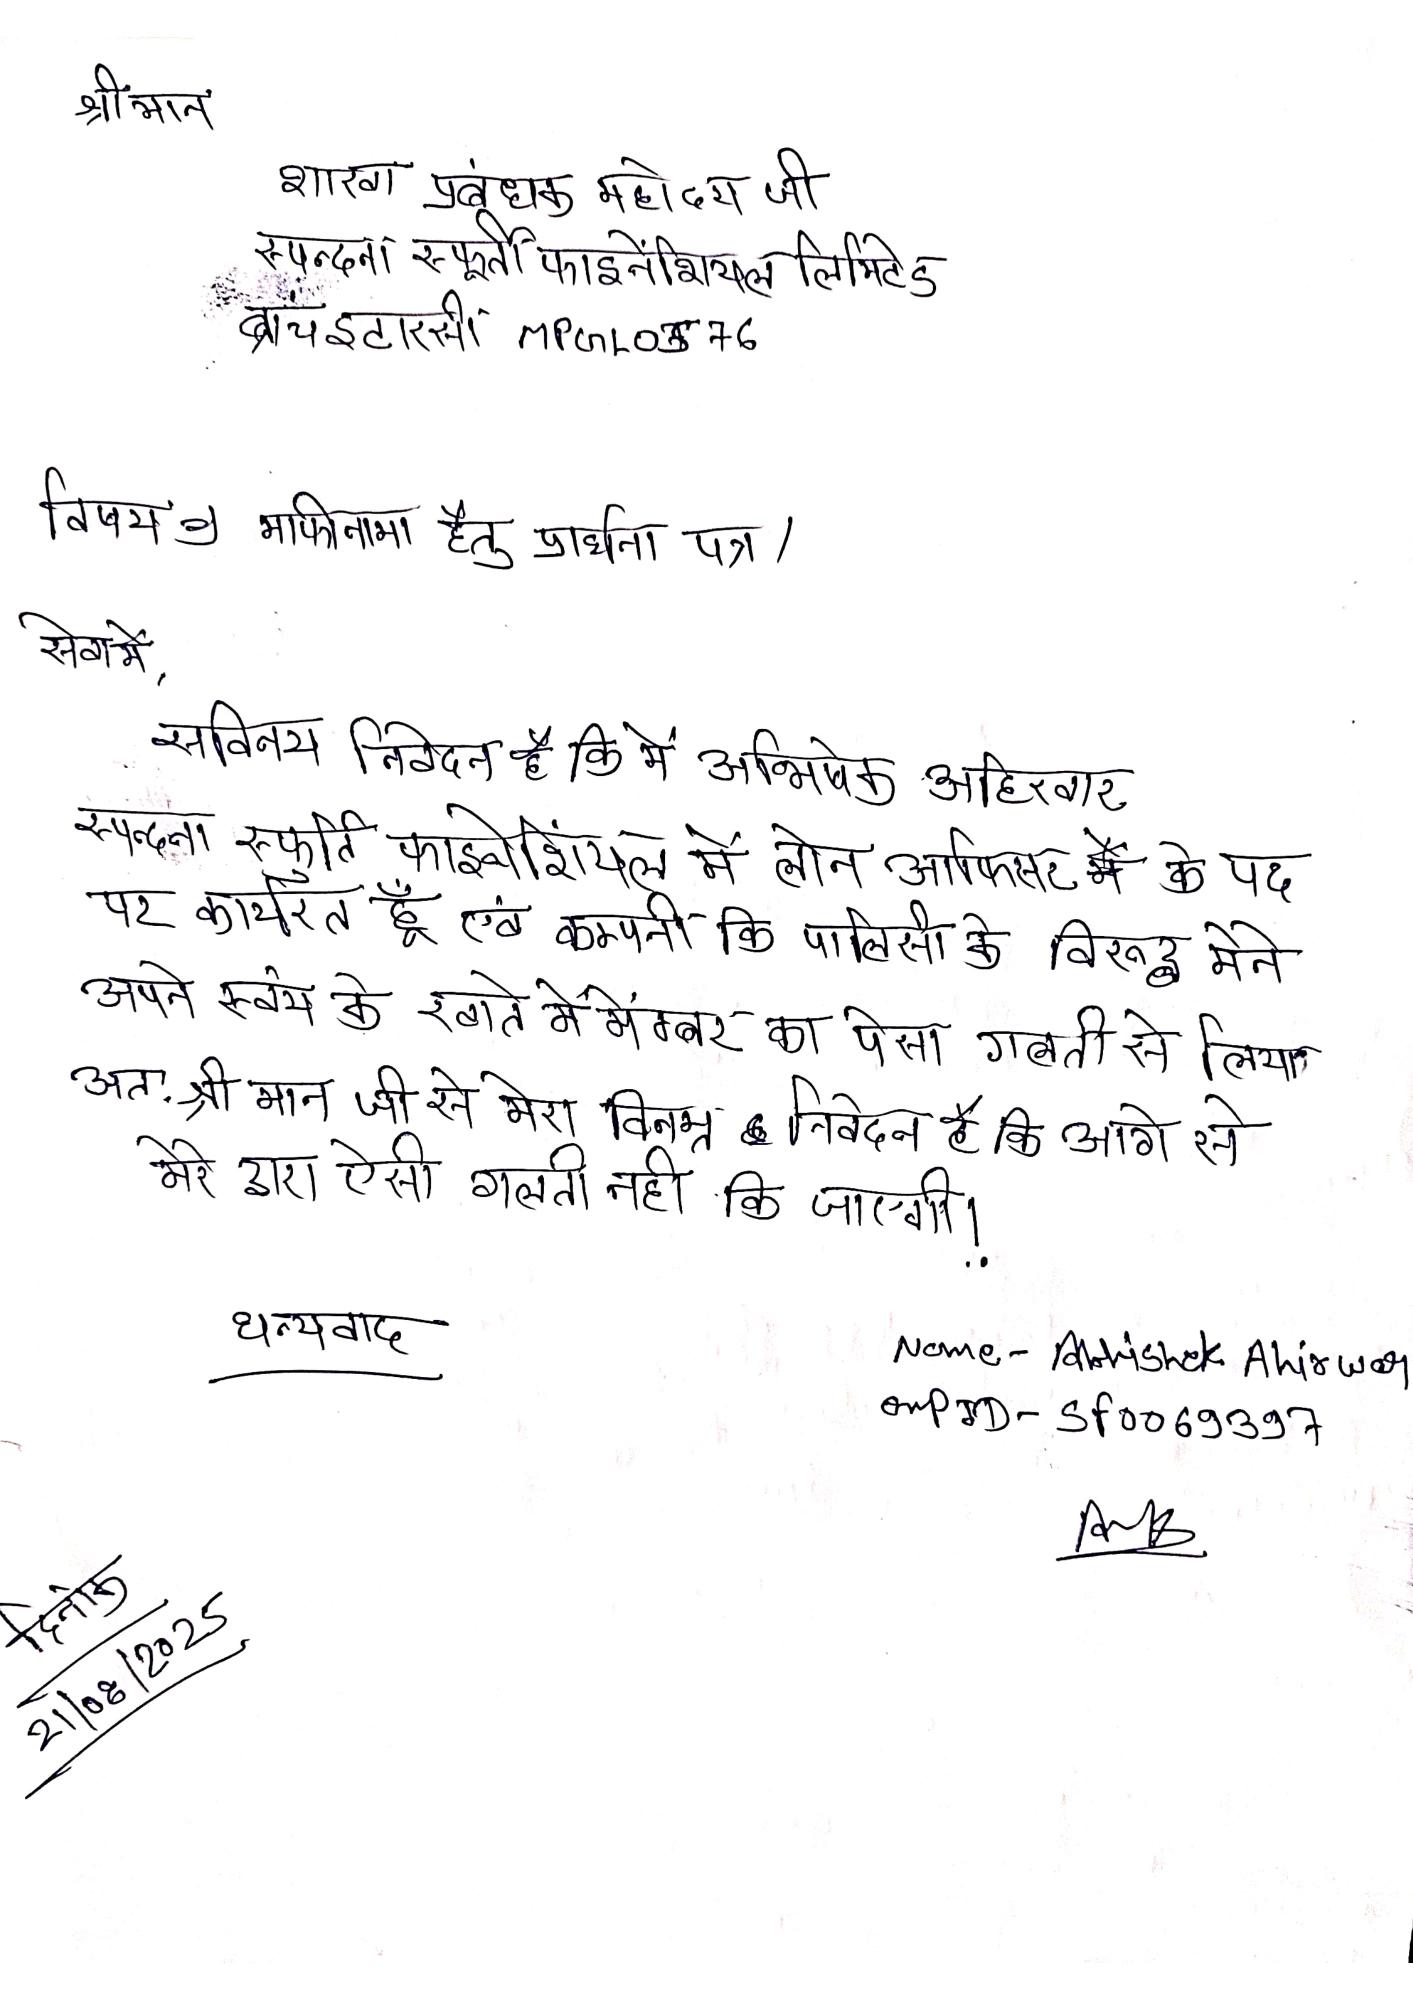 श्रीमान
शाखा प्रबंधक महोदय जी
स्पन्दना स्फूर्ती फाइनेंशियल लिमिटेड
ब्रांच इटारसी
विषय :- माफीनामा हेतु प्रार्थना पत्र।
सेवामें,
सविनय निवेदन है कि में अभिषेक अहिरवार
स्पन्दना स्फुर्ति फाइनेशिंयल में लोन आफिसर में के पद
पर कार्यरत हूँ एवं कम्पनी कि पालिसी के विरूद्ध मेने
अपने स्वंय के खाते में मेंम्बर का पेसा गलती से लिया
अत: श्री मान जी से मेरा विनम्र निवेदन है कि आगे से
मेरे द्वारा ऐसी गलती नही कि जाएगी!
धन्यवाद
Name- Abhishek Ahirwar
empID- Sf0069397
दिनांक
21/08/2025